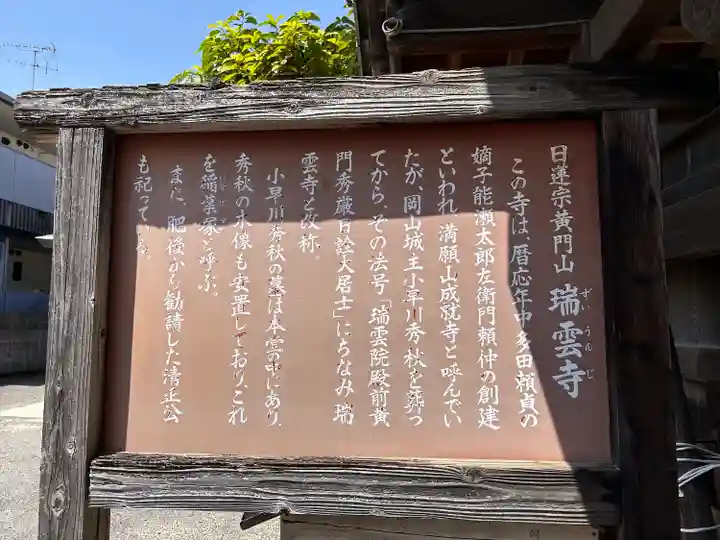 日蓮宗黄門山 瑞雲寺
ずいうんじ
この寺は、暦応年中多田頼貞の
嫡子能瀬太郎左衛門頼仲の創建
といわれ、満願山成就寺と呼んでい
たが、岡山城主小早川秀秋を葬っ
てから、その法号「瑞雲院殿前黄
門秀巌日詮大居士」にちなみ瑞
雲寺と改称。
小早川秀秋の墓は本堂の中にあり、
秀秋の木像も安置しており、これ
を稲葉家と呼ぶ。
また、肥後から勧請した清正公
も祀っている。